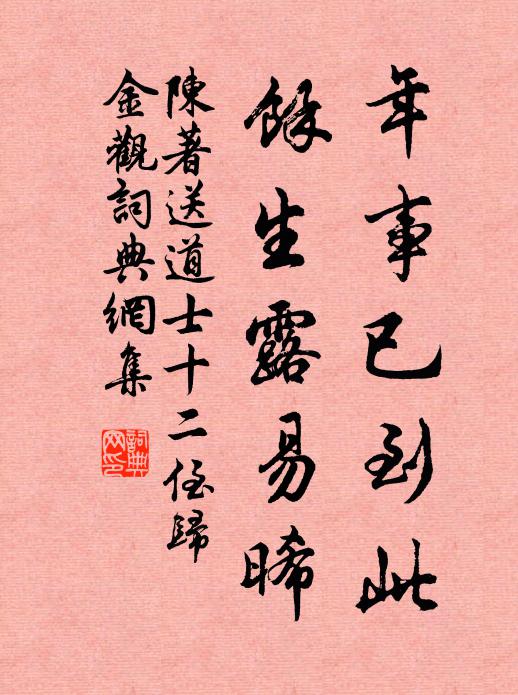 年事已到此
餘生露易晞
陳著送道士十二侄歸
金觀詞典網集
詞典網印